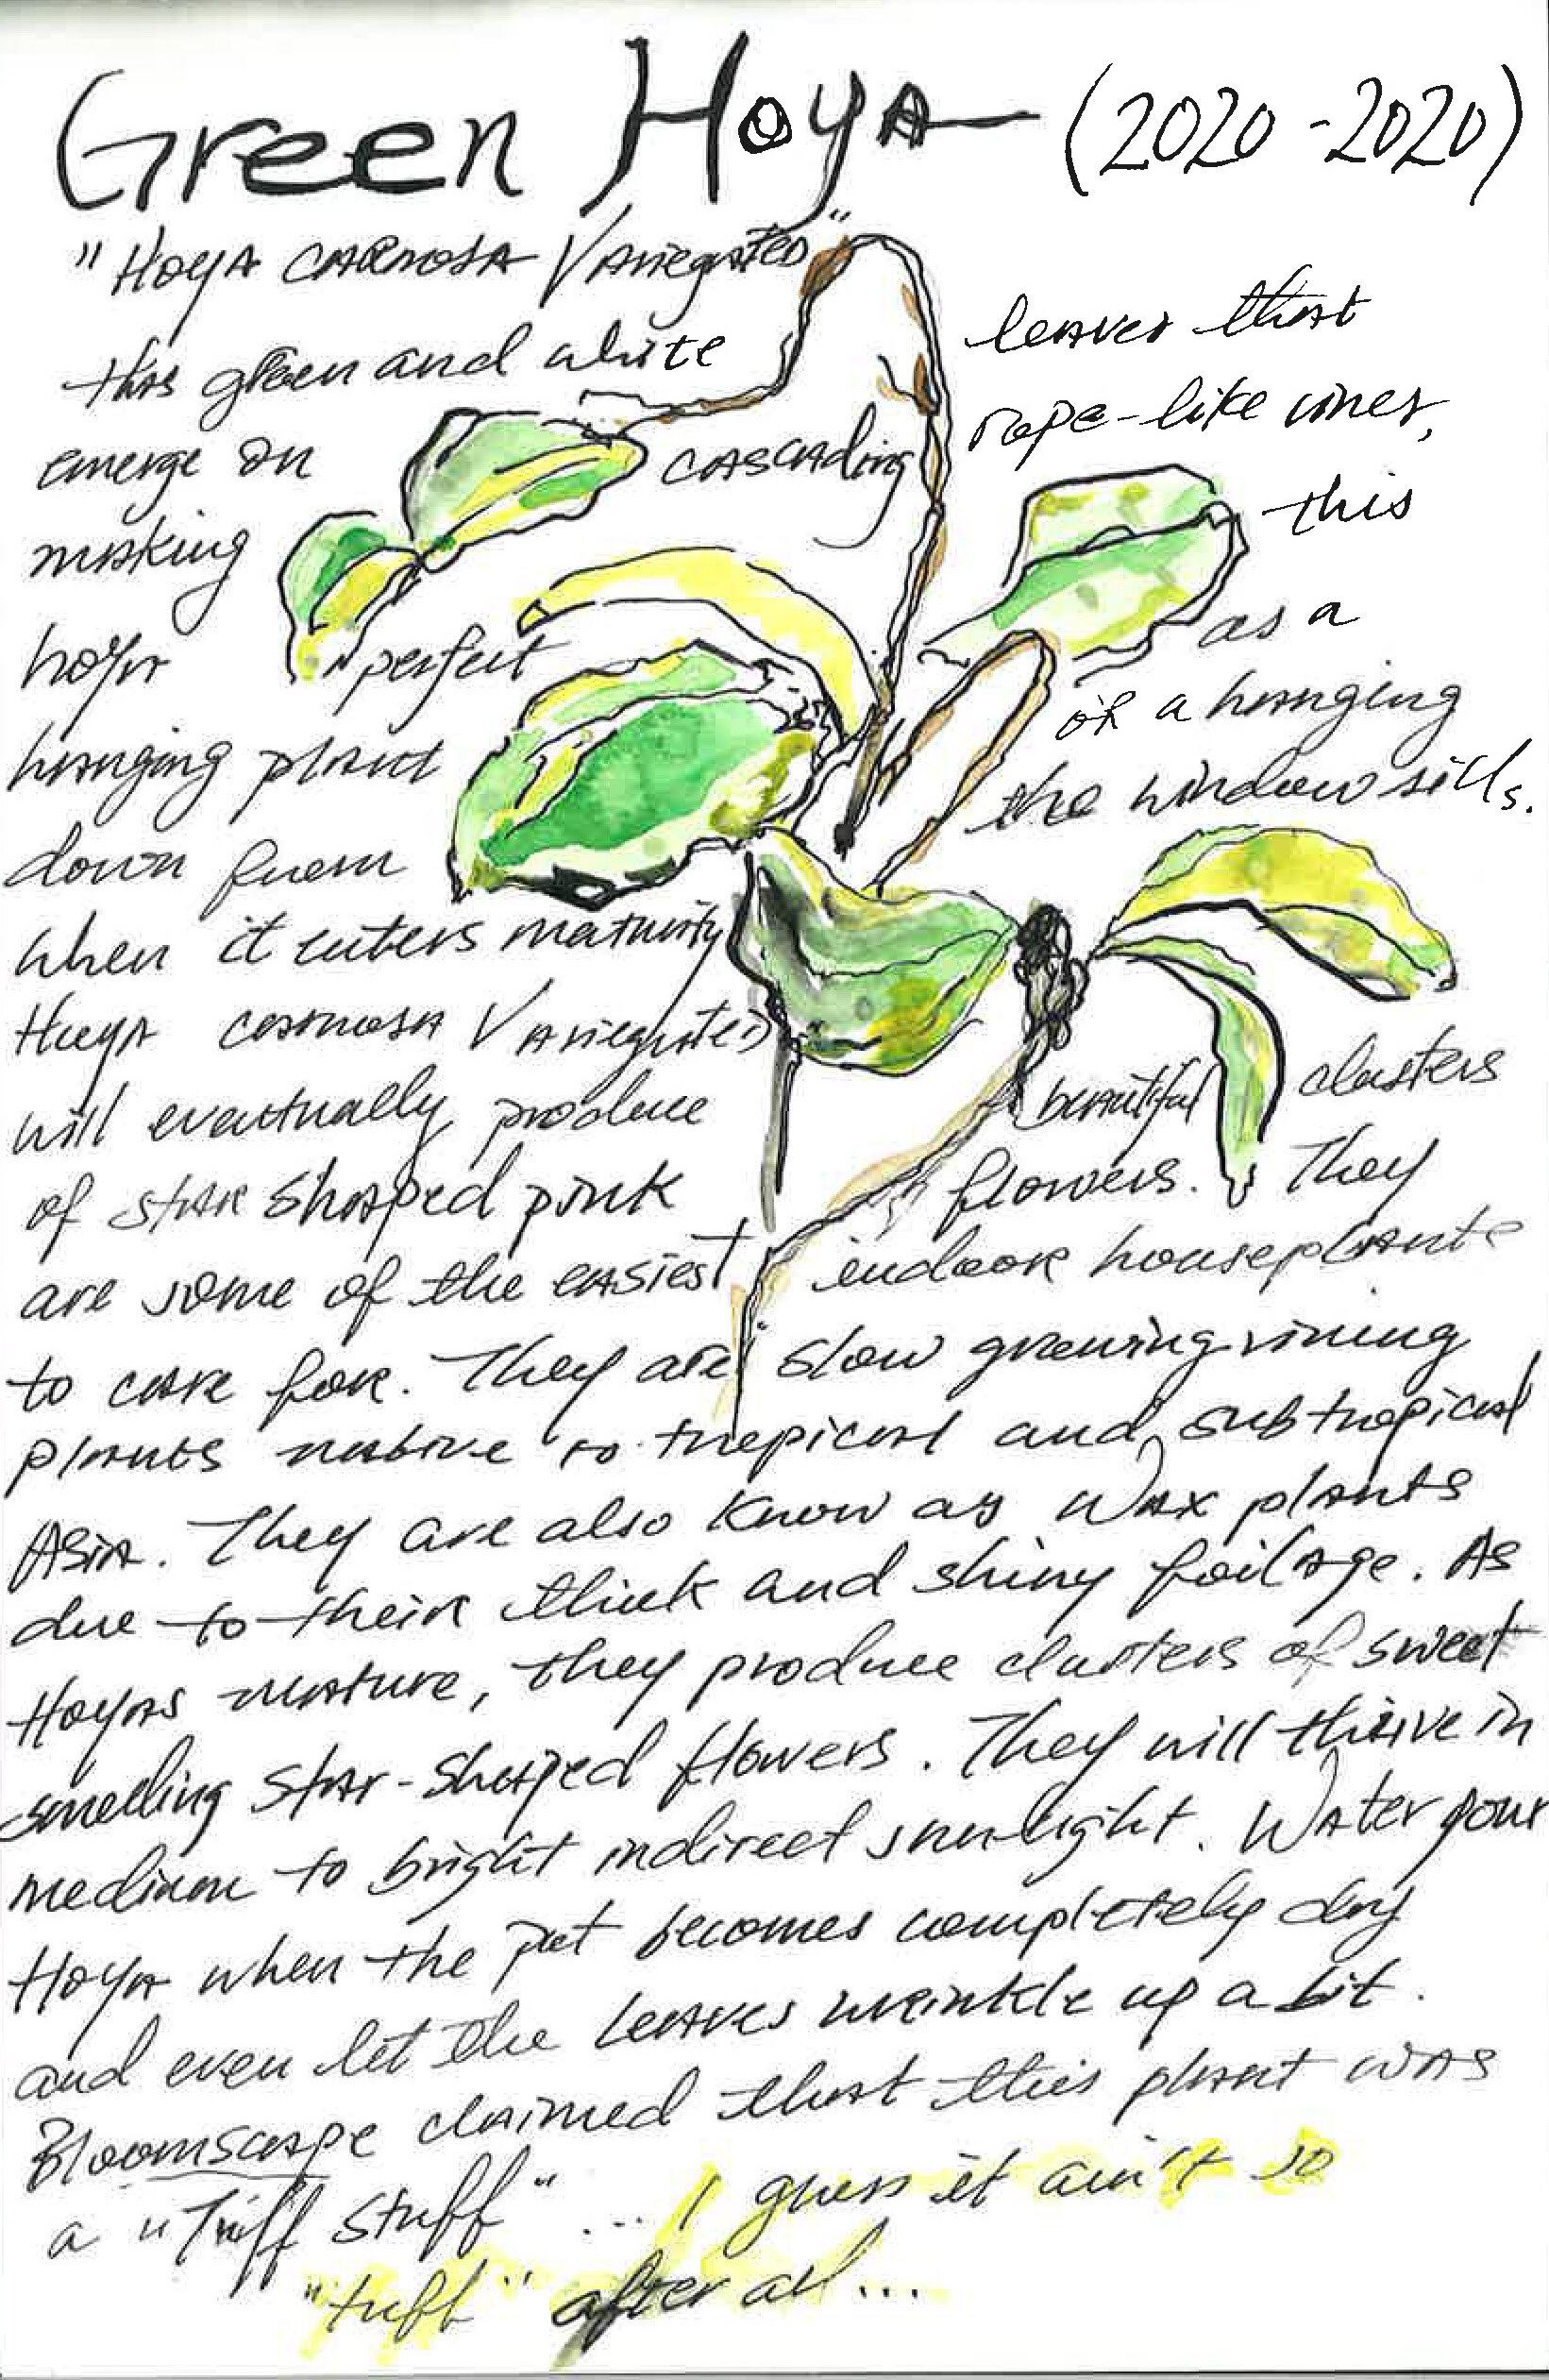 Green Hoya (2020-2020)
"Hoya carnosa Variegated"
this green and white leaves that
emerge on cascading rope-like vines,
making this
hoya perfect as a
hanging plant or a hanging
down from the window sills.
when it enters maturity
Hoya carnosa Variegated
will eventually produce beautiful clusters
of star shaped pink flowers. They
are some of the easiest indoor houseplants
to care for. They are slow growing vining
plants native to tropical and subtropical
Asia. They are also know as Wax plants
due to their thick and shiny foilage. As
Hoyas mature, they produce clusters of sweet
smelling star-shaped flowers. They will thrive in
medium to bright indirect sunlight. Water your
Hoya when the pot becomes completely dry
and even let the leaves wrinkle up a bit.
Bloomscape claimed that this plant was
a "Tuff stuff" ... I guess it ain't so
"tuff" after all...